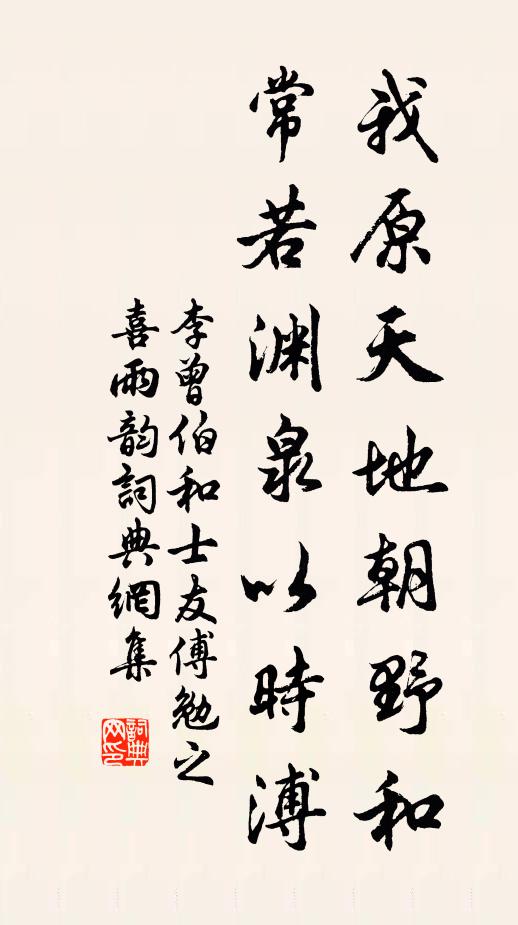 我原天地朝野和
常若渊泉以時溥
李曾伯和士友傅勉之
喜雨韵詞典網集
詞典网印